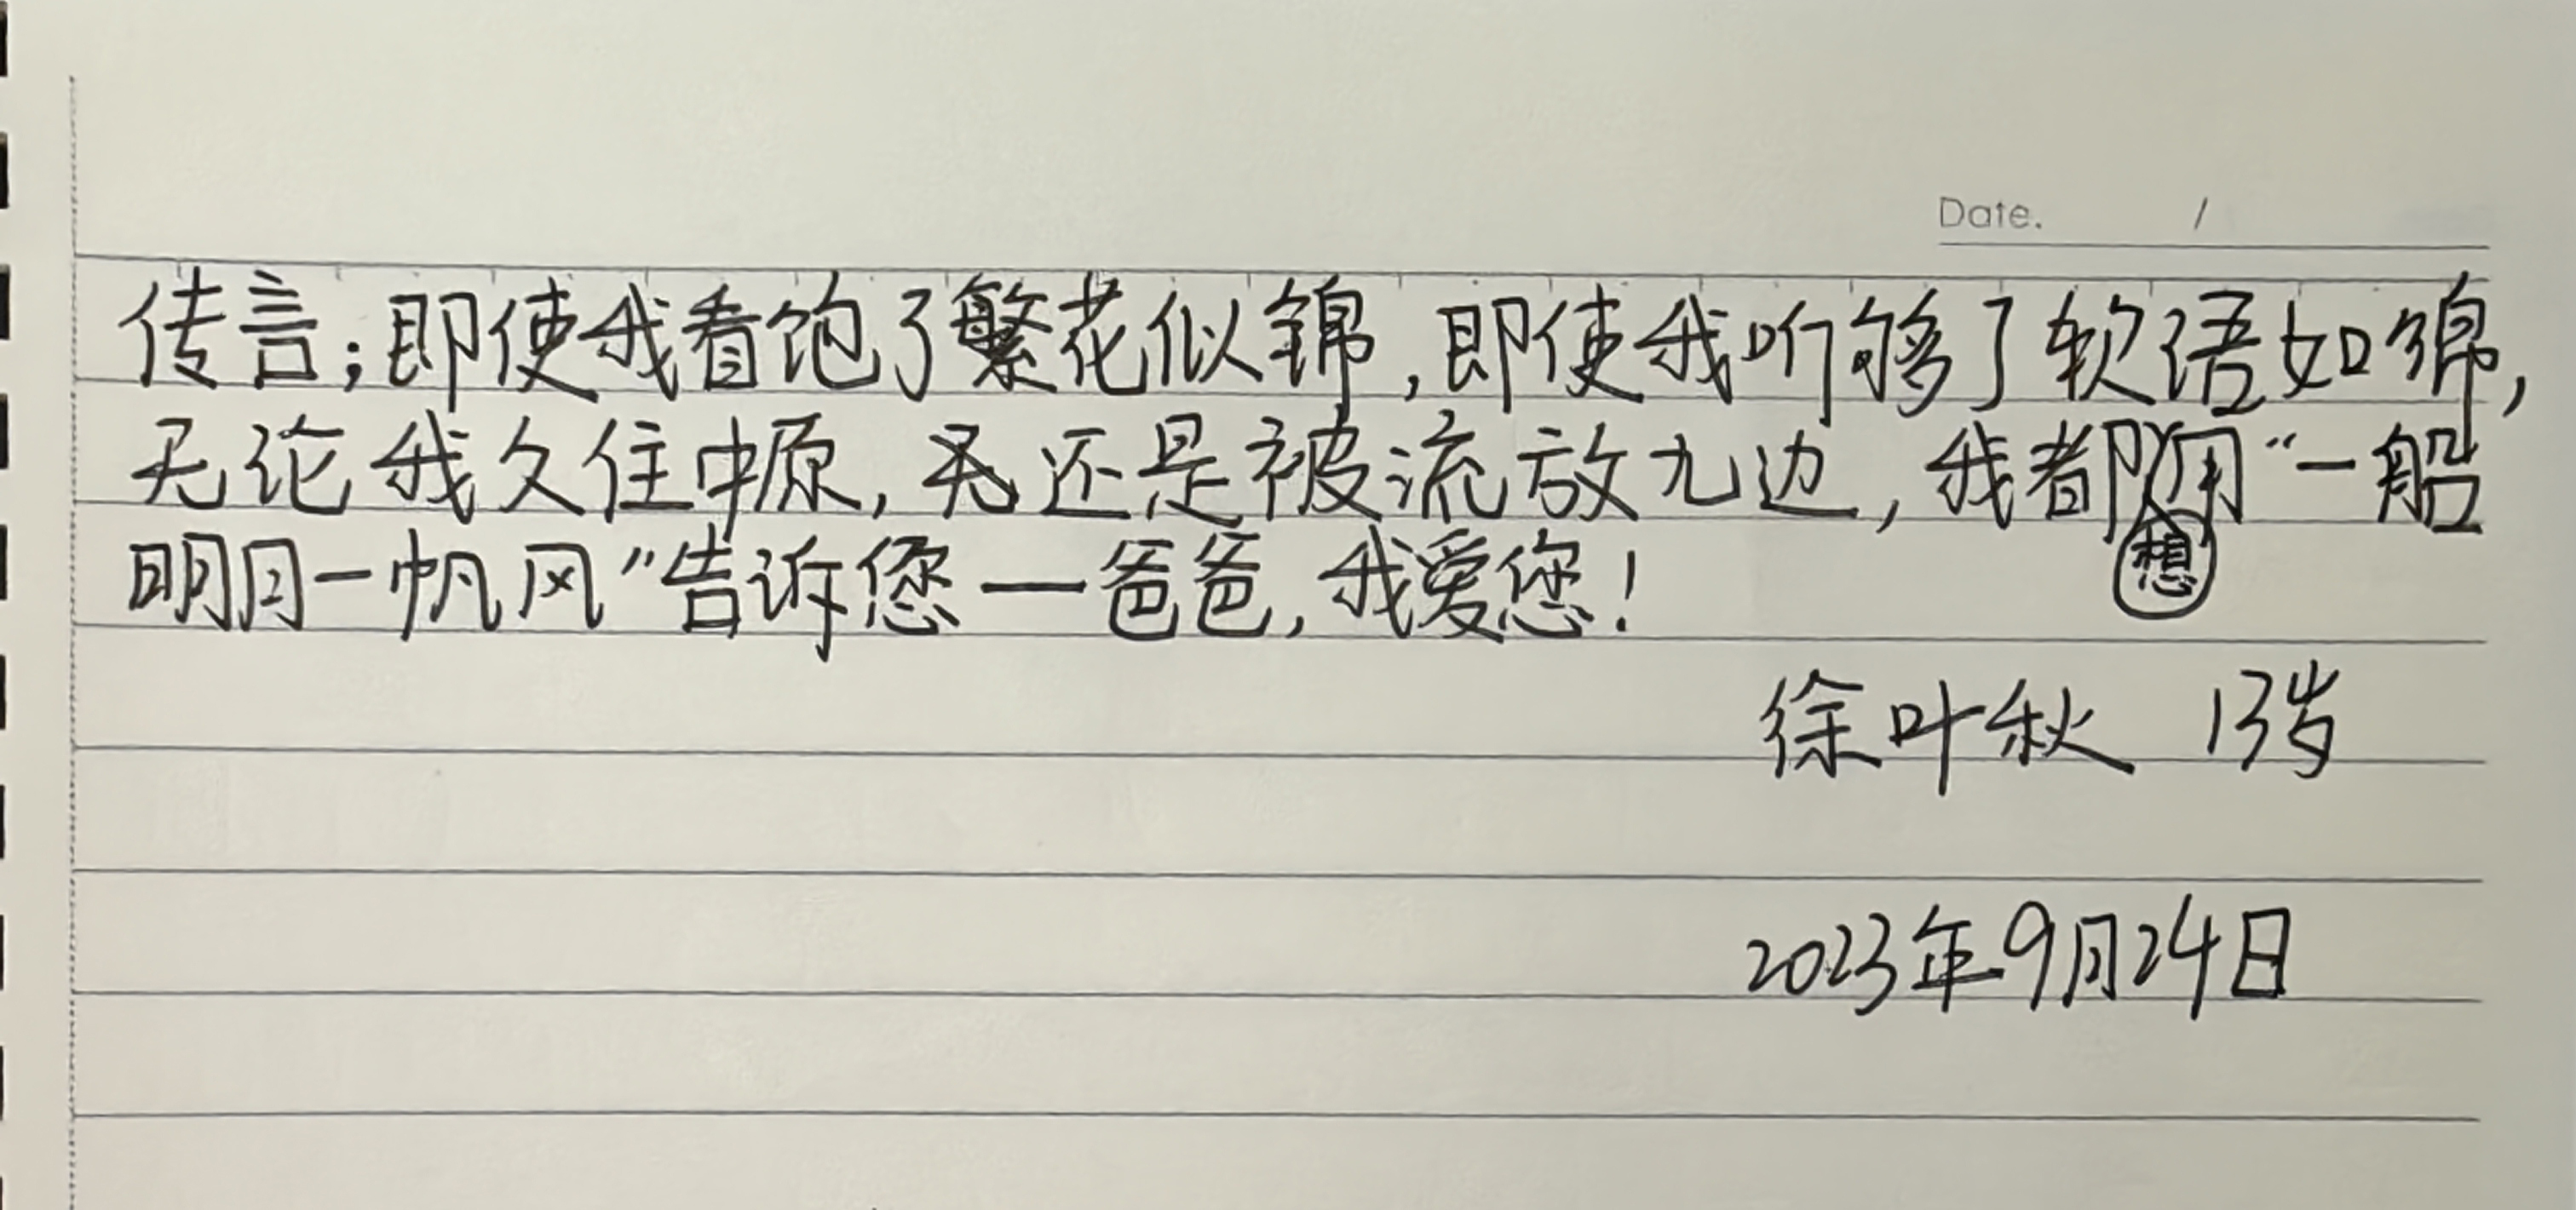 Date. /
传言;即使我看饱了繁花似锦,即使我听够了软语如绵,
无论我久住中原,还是被流放九边,我都想用“一船
明月一帆风”告诉您—爸爸,我爱您!
徐叶秋 13岁
2023年9月24日